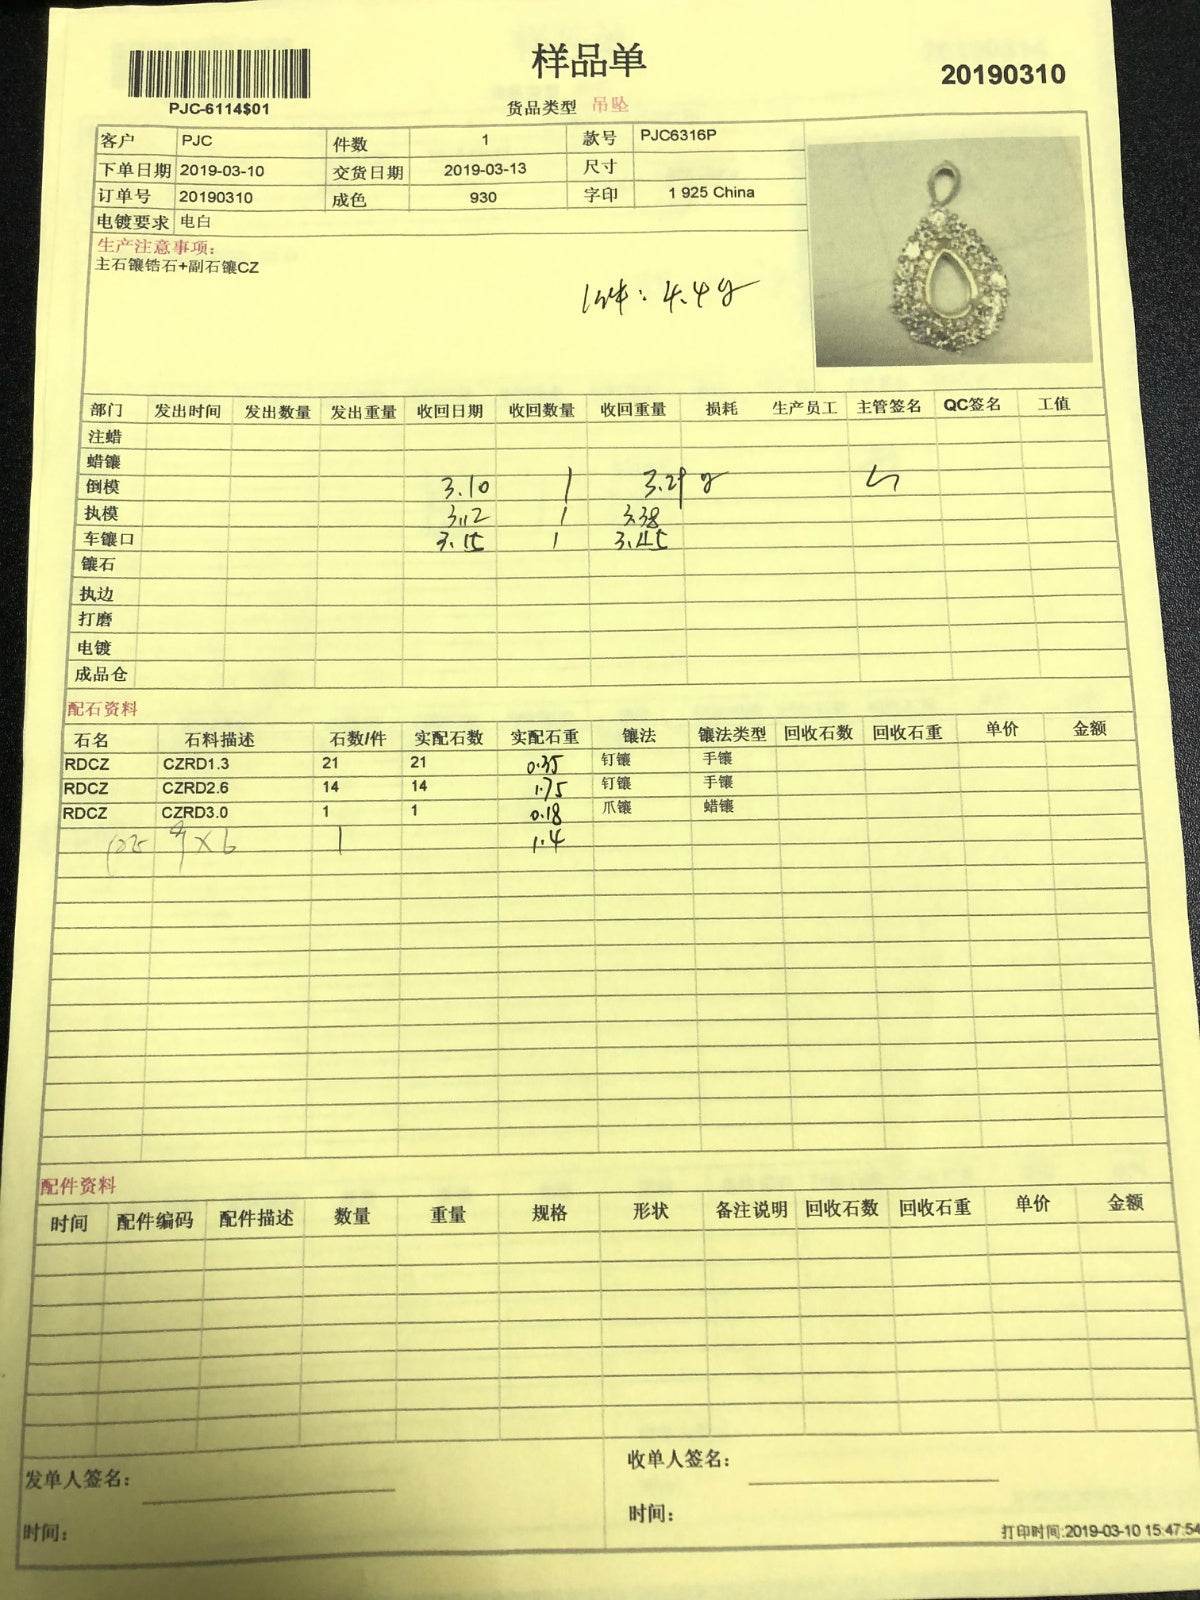 样品单
20190310
PJC-6114$01
货品类型 吊坠
客户 PJC 件数 1 款号 PJC6316P
下单日期 2019-03-10 交货日期 2019-03-13 尺寸
订单号 20190310 成色 930 字印 1 925 China
电镀要求 电白
生产注意事项:
主石镶锆石+副石镶CZ
1件: 4.4g
部门 发出时间 发出数量 发出重量 收回日期 收回数量 收回重量 损耗 生产员工 主管签名 QC签名 工值
注蜡
蜡镶
倒模 3.10 1 3.29 g
执模 3.12 1 3.38
车镶口 3.15 1 3.45
镶石
执边
打磨
电镀
成品仓
配石资料
石名 石料描述 石数/件 实配石数 实配石重 镶法 镶法类型 回收石数 回收石重 单价 金额
RDCZ CZRD1.3 21 21 0.35 钉镶 手镶
RDCZ CZRD2.6 14 14 1.75 钉镶 手镶
RDCZ CZRD3.0 1 1 0.18 爪镶 蜡镶
9×6 1 1.4
配件资料
时间 配件编码 配件描述 数量 重量 规格 形状 备注说明 回收石数 回收石重 单价 金额
发单人签名:
收单人签名:
时间:
时间:
打印时间:2019-03-10 15:47:54